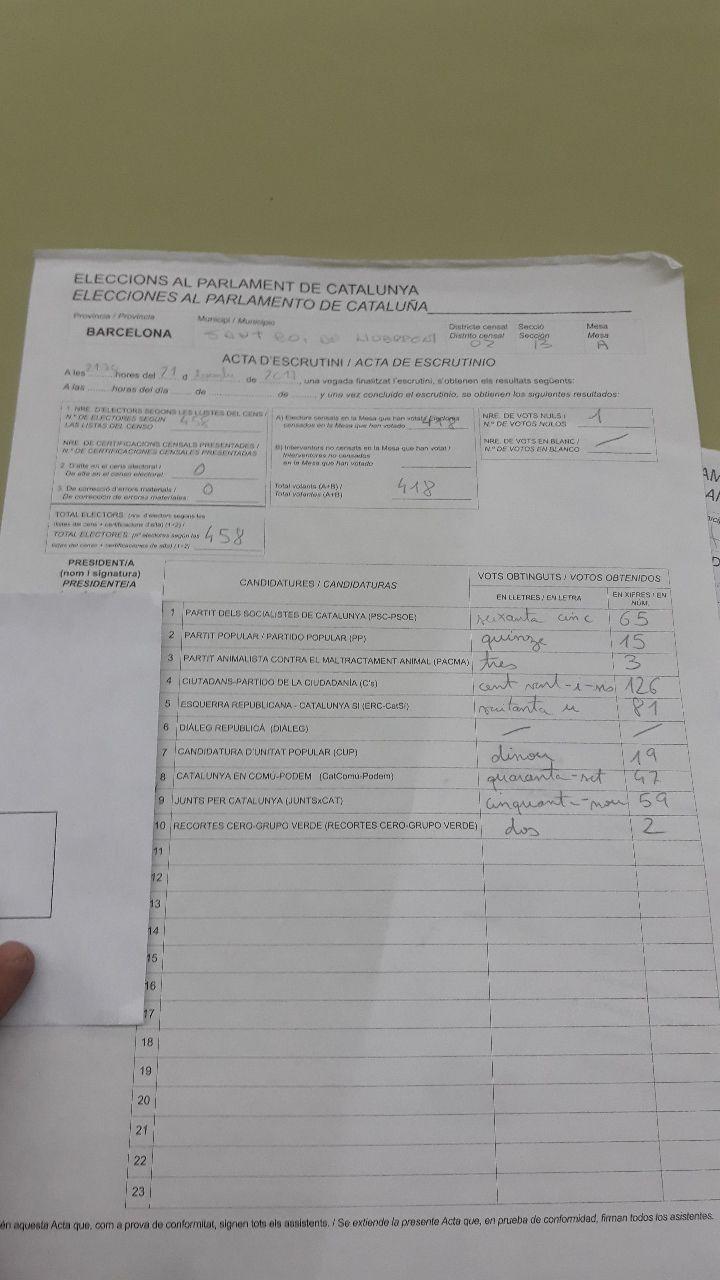 ELECCIONS AL PARLAMENT DE CATALUNYA
ELECCIONES AL PARLAMENTO DE CATALUÑA
Província / Provincia
BARCELONA
Municipi / Municipio
SANT BOI DE LLOBREGAT
Districte censal
Distrito censal
02
Secció
Sección
13
Mesa
Mesa
A
ACTA D'ESCRUTINI / ACTA DE ESCRUTINIO
A les hores del 21 d de 2017, una vegada finalitzat l'escrutini, s'obtenen els resultats següents:
A las ........ horas del día ........ de ........ de ........, y una vez concluido el escrutinio, se obtienen los siguientes resultados:
1. NRE. D'ELECTORS SEGONS LES LLISTES DEL CENS /
N.º DE ELECTORES SEGÚN
LAS LISTAS DEL CENSO
458
NRE. DE CERTIFICACIONS CENSALS PRESENTADES /
N.º DE CERTIFICACIONES CENSALES PRESENTADAS
2. D'alta en el cens electoral /
De alta en el censo electoral
0
3. De correcció d'errors materials /
De corrección de errores materiales
0
TOTAL ELECTORS (nre. d'electors segons les
llistes del cens + certificacions d'alta) (1+2) /
TOTAL ELECTORES (nº electores según las
listas del censo + certificaciones de alta) (1+2)
458
A) Electors censats en la Mesa que han votat / Electores
censados en la Mesa que han votado
418
B) Interventors no censats en la Mesa que han votat /
Interventores no censados
en la Mesa que han votado
Total votants (A+B) /
Total votantes (A+B)
418
NRE. DE VOTS NULS /
N.º DE VOTOS NULOS
1
NRE. DE VOTS EN BLANC /
N.º DE VOTOS EN BLANCO
PRESIDENT/A
(nom i signatura)
PRESIDENTE/A
CANDIDATURES / CANDIDATURAS
VOTS OBTINGUTS / VOTOS OBTENIDOS
EN LLETRES / EN LETRA
EN XIFRES / EN NÚM.
1 PARTIT DELS SOCIALISTES DE CATALUNYA (PSC-PSOE) seixanta cinc 65
2 PARTIT POPULAR / PARTIDO POPULAR (PP) quinze 15
3 PARTIT ANIMALISTA CONTRA EL MALTRACTAMENT ANIMAL (PACMA) tres 3
4 CIUTADANS-PARTIDO DE LA CIUDADANÍA (C's) cent vint-i-sis 126
5 ESQUERRA REPUBLICANA - CATALUNYA SÍ (ERC-CatSí) vuitanta u 81
6 DIÀLEG REPUBLICÀ (DIÀLEG)
7 CANDIDATURA D'UNITAT POPULAR (CUP) dinou 19
8 CATALUNYA EN COMÚ-PODEM (CatComú-Podem) quaranta-set 47
9 JUNTS PER CATALUNYA (JUNTSxCAT) cinquanta-nou 59
10 RECORTES CERO-GRUPO VERDE (RECORTES CERO-GRUPO VERDE) dos 2
11
12
13
14
15
16
17
18
19
20
21
22
23
én aquesta Acta que, com a prova de conformitat, signen tots els assistents. / Se extiende la presente Acta que, en prueba de conformidad, firman todos los asistentes.